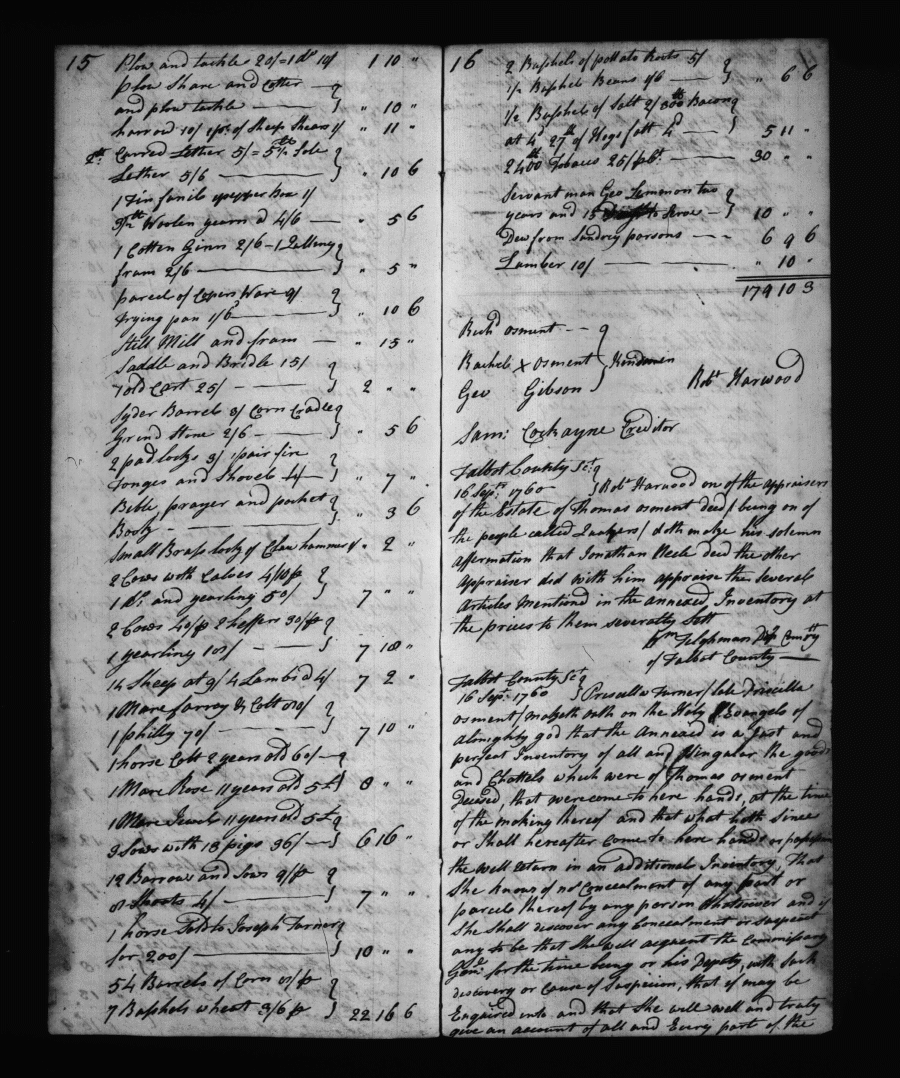 15
Plow and tackle 20/ = 1 do 10/ 1 10 "
plow Share and Cotter —
and plow tackle — " 10 "
harrow 10/ 1 pr. of Sheep Shears 1/ " 11 "
Curred Lether 5/ = 5 1/2 lb Sole
Lether 5/6 — " 10 6
1 Tin 1 pepper Box 1/
3 1/2 lb Woolen yearn d 4/6 — " 5 6
1 Cotten Ginn 2/6 - 1
fram 2/6 — " 5 "
parcel of Ware 9/
frying pan 1/6 — " 10 6
Still Mill and fram — " 15 "
Saddle and Bridle 15/
1 old Cart 25/ - — 2 " "
Syder Barrels 3/ Corn Cradle
Grind Stone 2/6 - — " 5 6
2 padlocks 3/ 1 pair fire
Tonges and Shovel 4/ - " 7 "
Bible, prayer and pocket
Book - — " 3 6
Small Brass lock of Claw hammer 1/ " 2 "
2 Cows with Calves 4/10 p
1 do and yearling 50/ 7 " "
2 Cows 40/p 2 heffers 30/p
1 yearling 10/ - — 7 10 "
14 Sheep at 9/ 4 Lambs d 4/ 7 2 "
1 Mare farroy & Colt
1 philly 70/ — 7 10 "
1 horse Colt 2 years old 60/ —
1 Mare Rose 11 years old 5 £ 8 " "
1 Mare Jewel 11 years old 5 £
3 Sows with 18 pigs 36/ — 6 16 "
12 Barrows and Sows 9/p
8 Shoats 4/ — 7 " "
1 horse Sold to Joseph Turner
for 200/ — 10 " "
54 Barrels of Corn /p
7 Bushels wheat 3/6 p 22 16 6
16
2 Bushels of pottato Roots 5/
1/2 Bushels Beans 1/6 — " 6 6
1/2 Bushels of Salt 2/ 300 lb Bacon
at 4d 27 lb of Hogs fatt 4d — 5 11 "
2400 lb Tobaco 25/ pCt. — 30 " "
Servant man Geo Lemmon two
years and 15 to Serve - 10 " "
Dew from Sundrey persons - - - 6 9 6
Lumber 10/ — " 10 "
179 10 3
Richd Osment - -
Rachel X Osment Kindsmen
Geo Gibson
Robt Harwood
Saml Cockayne Creditor
Talbot County Sct.
16 Sept. 1760 Robt Harwood on of the appraisers
of the Estate of Thomas osment deced / being on of
the people called Quakers / doth make his solemn
affermation that Jonathan Neele deced the other
appraiser did with him appraise the Severale
Articles Mentiond in the annexed Inventory at
the prices to them severally Sett
Wm Tilghman Dep Comry
of Talbot County —
Talbot County Sct
16 Sept. 1760 Priscella Turner / late Priscilla
osment / maketh oath on the Holy Evangels of
Almighty god that the Annexed is a Just and
perfect Inventory of all and Singular the goods
and Chattels which were of Thomas osment
Deceased, that were come to here hands, at the time
of the making thereof and that what hath Since
or Shall hereafter come to here hands or possession
the will return in an additional Inventory, That
She knows of no Concealment of any part or
parcels thereof by any person whatsoever and if
She Shall discover any Concealment or Suspect
any to be that She will acquent the Commissary
Genl. for the time being or his Deputy, with Such
discovery or Cause of Suspicion, that it may be
Enquired into and that She will well and truly
give an account of all and Every part of the